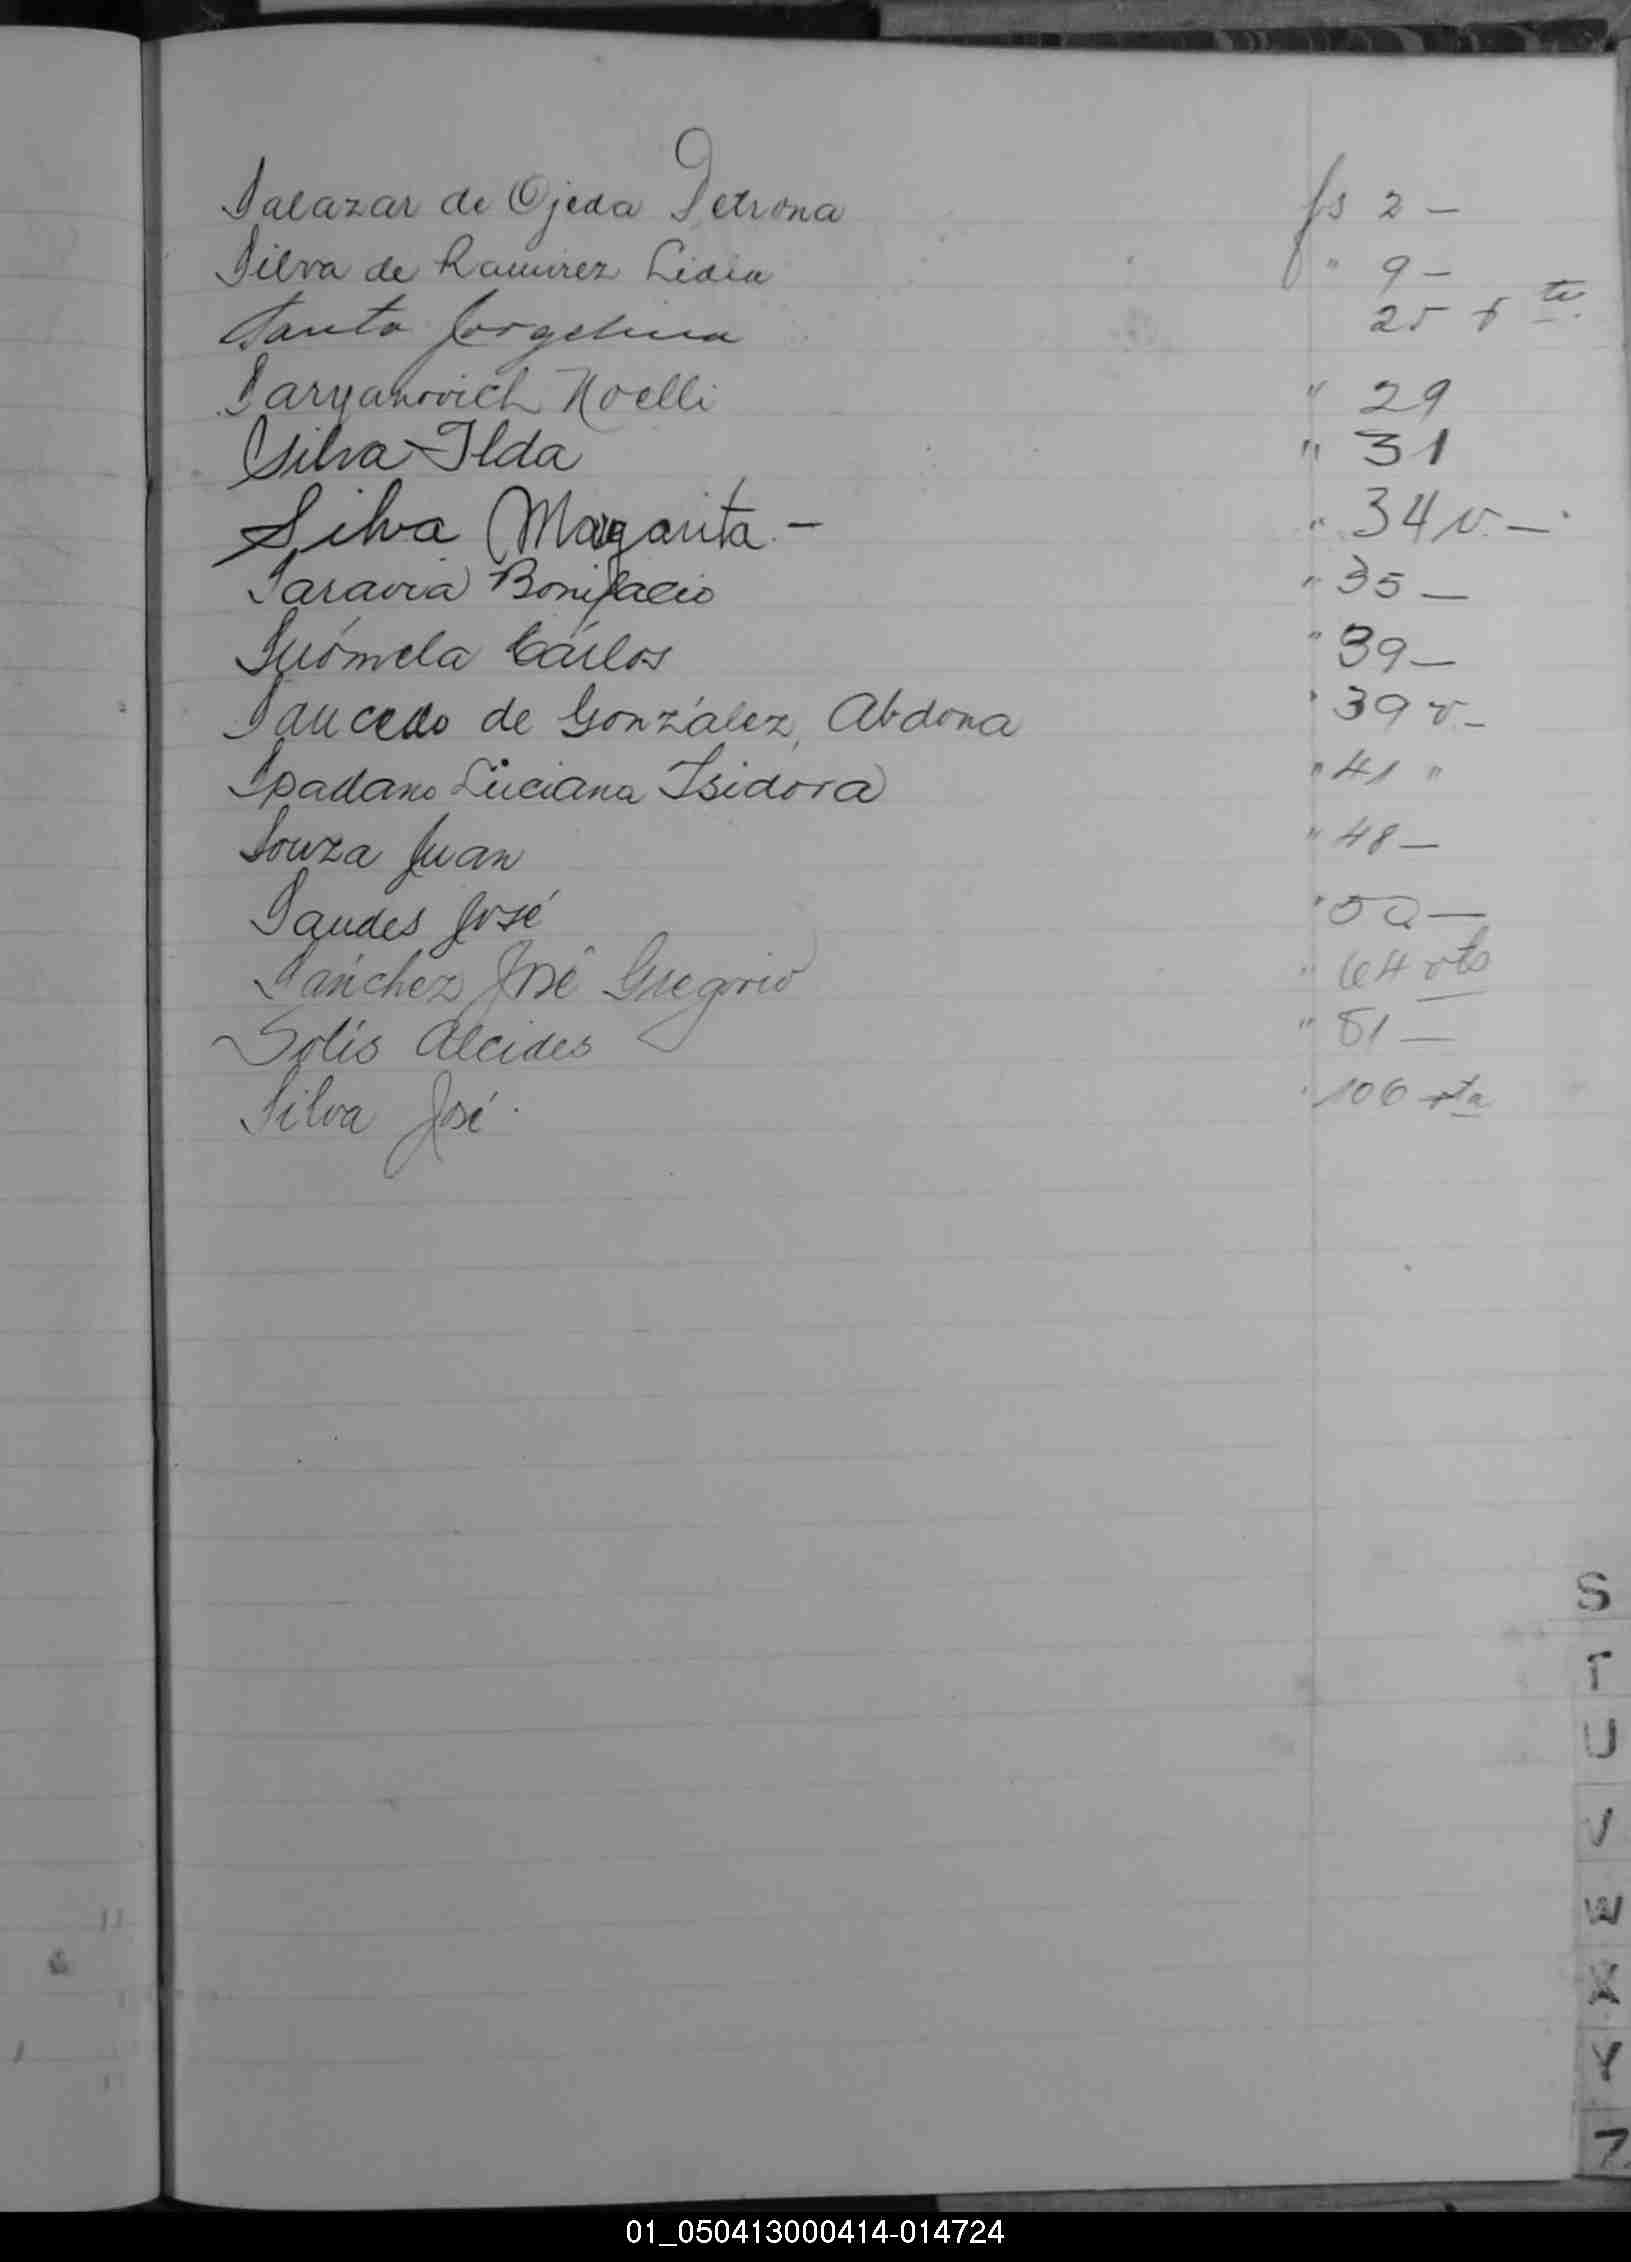 Salazar de Ojeda Petrona fs 2 —
Silva de Ramirez Lidia " 9 —
Santa Jorgelina 25 vta.
Saryanovich Noelli " 29
Silva Ilda " 31
Silva Margarita. — " 34 v. —
Saravia Bonifacio " 35 —
Suómela Cárlos " 39 —
Saucedo de González, Abdona " 39 v. —
Spadano Luciana Isidora " 41 "
Souza Juan " 48 —
Saudes José " 50 —
Sánchez José Gregorio " 64 vta
Solís Alcides " 81 —
Silva José. " 106 vta
S
T
U
V
W
X
Y
Z
01_050413000414-014724